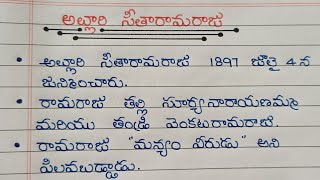 అల్లూరి సీతారామరాజు
• అల్లూరి సీతారామరాజు 1897 జులై 4న
జన్మించారు.
• రామరాజు తల్లి సూర్యనారాయణమ్మ
మరియు తండ్రి వెంకటరామరాజు
• రామరాజు "మన్యం వీరుడు" అని
పిలవబడ్డాడు.